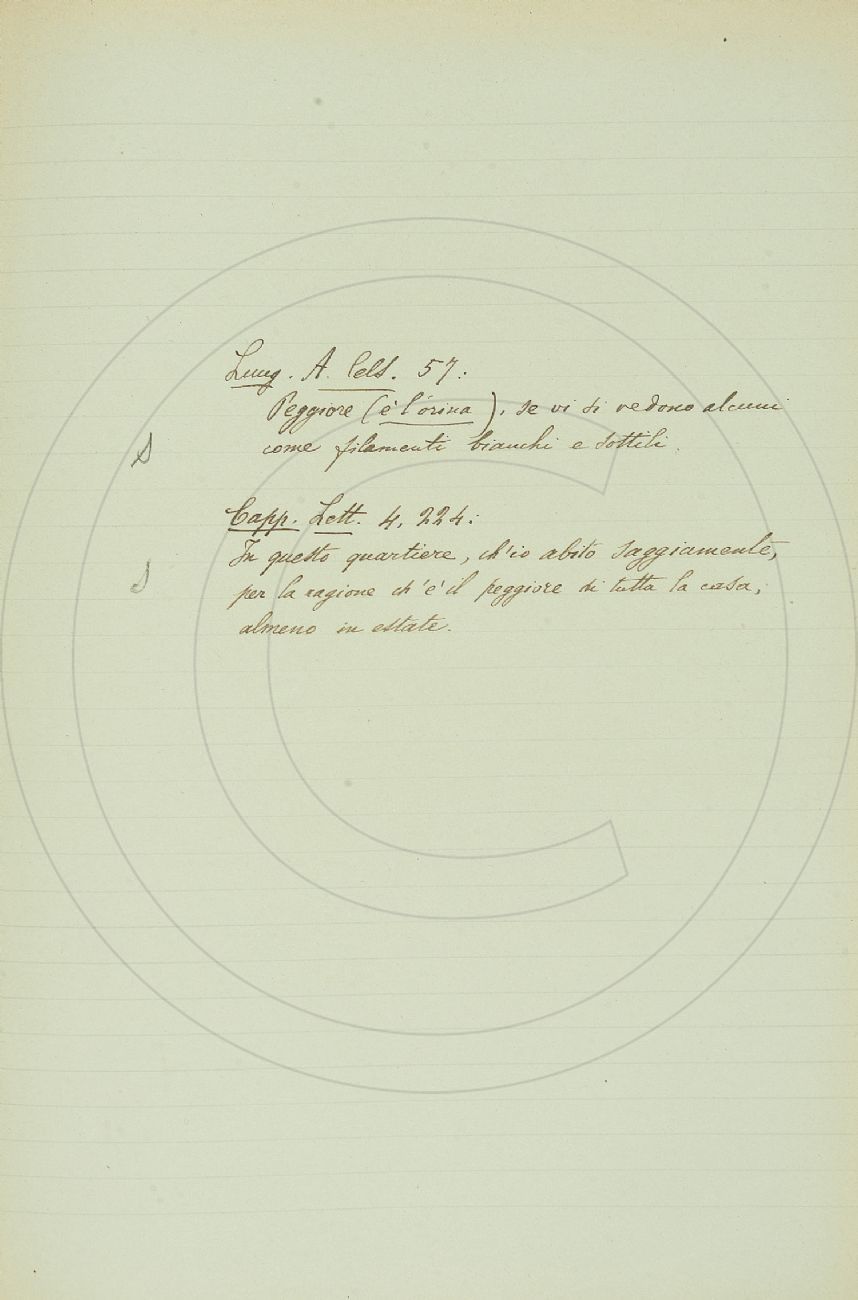 Lung. A. Cels. 57:
Peggiore (è l'orina), se vi si vedono alcuni
come filamenti bianchi e sottili.
S
Capp. Lett. 4, 224:
In questo quartiere, ch'io abito saggiamente,
S
per la ragione ch'è il peggiore di tutta la casa,
almeno in estate.